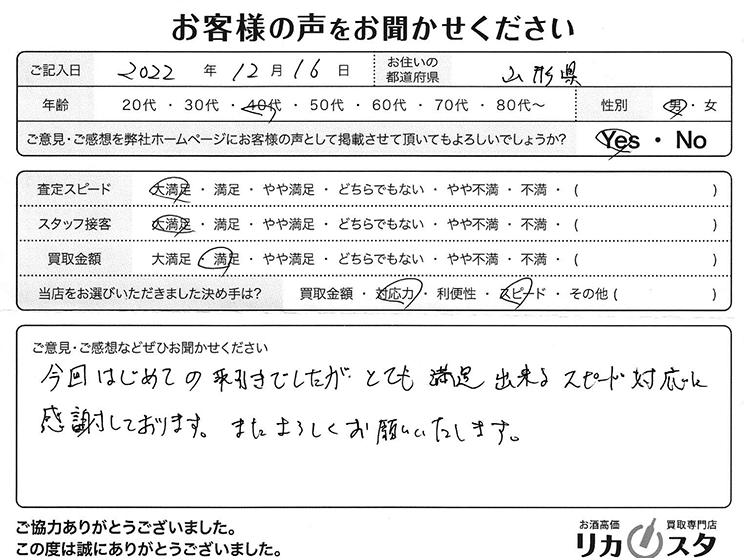 お客様の声をお聞かせください
ご記入日 2022 年 12 月 16 日 お住いの都道府県 山形県
年齢 20代 ・ 30代 ・ 40代 ・ 50代 ・ 60代 ・ 70代 ・ 80代〜 性別 男 ・ 女
ご意見・ご感想を弊社ホームページにお客様の声として掲載させて頂いてもよろしいでしょうか? Yes ・ No
査定スピード 大満足 ・ 満足 ・ やや満足 ・ どちらでもない ・ やや不満 ・ 不満 ・ ( )
スタッフ接客 大満足 ・ 満足 ・ やや満足 ・ どちらでもない ・ やや不満 ・ 不満 ・ ( )
買取金額 大満足 ・ 満足 ・ やや満足 ・ どちらでもない ・ やや不満 ・ 不満 ・ ( )
当店をお選びいただきました決め手は? 買取金額 ・ 対応力 ・ 利便性 ・ スピード ・ その他 ( )
ご意見・ご感想などぜひお聞かせください
今回はじめての取引きでしたが とても 満足 出来る スピード対応に
感謝しております。またよろしくお願いいたします。
ご協力ありがとうございました。
この度は誠にありがとうございました。
お酒高価 買取専門店
リカスタ